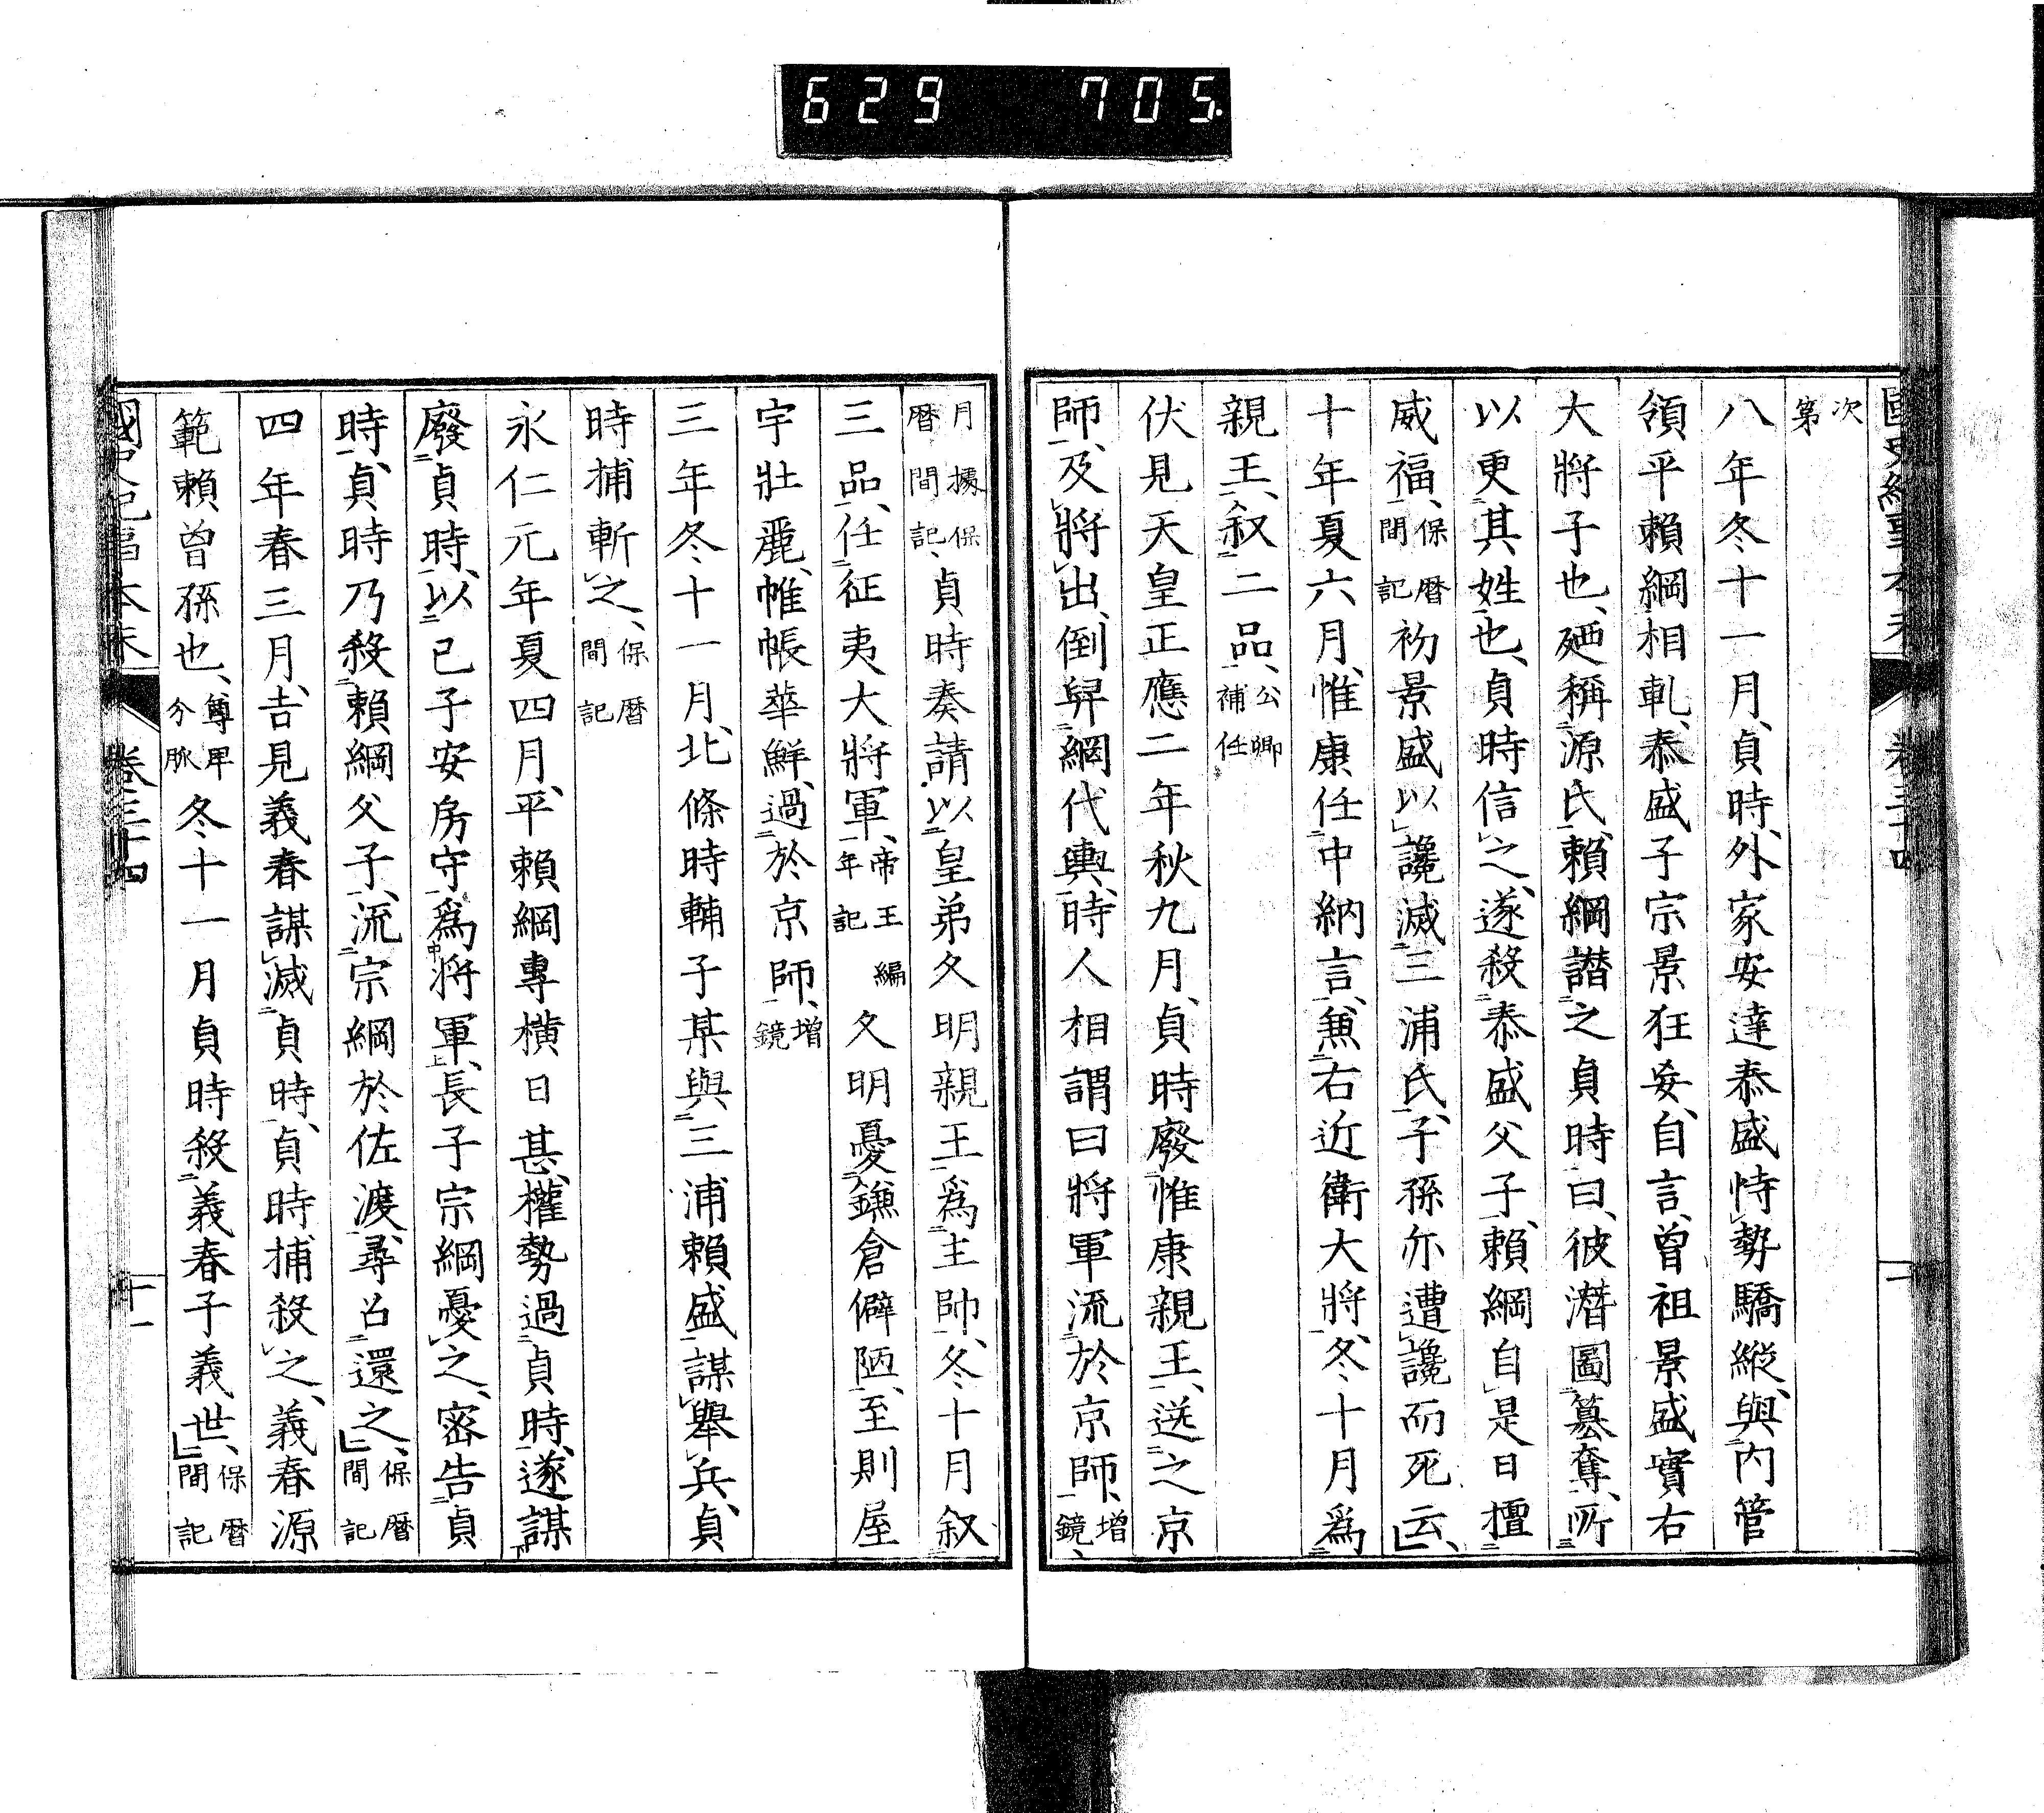 629 705.
次第
八年冬十一月、貞時外家安達泰盛恃勢驕縱、與內管
領平賴綱相軋、泰盛子宗景狂妄、自言、曾祖景盛實右
大將子也、廼稱源氏、賴綱譛之貞時曰、彼潛圖簒奪、所
以更其姓也、貞時信之、遂殺泰盛父子、賴綱自是日擅
威福、保曆間記初景盛以讒滅三浦氏、子孫亦遭讒而死云、
十年夏六月、惟康任中納言、兼右近衛大將、冬十月爲
親王、叙二品、公卿補任
伏見天皇正應二年秋九月、貞時廢惟康親王、送之京
師、及將出、倒舁網代輿、時人相謂曰將軍流於京師、增鏡、
月據保曆間記、貞時奏請以皇弟久明親王爲主帥、冬十月叙
三品、任征夷大將軍、帝王編年記久明憂鎌倉僻陋、至則屋
宇壯麗、帷帳華鮮、過於京師、增鏡
三年冬十一月、北條時輔子某與三浦賴盛謀舉兵、貞
時捕斬之、保曆間記
永仁元年夏四月、平賴綱專橫日甚、權勢過貞時、遂謀
廢貞時、以己子安房守爲將軍、長子宗綱憂之、密吿貞
時、貞時乃殺賴綱父子、流宗綱於佐渡、尋召還之、保曆間記
四年春三月、吉見義春謀滅貞時、貞時捕殺之、義春源
範賴曾孫也、尊卑分脈冬十一月貞時殺義春子義世、保曆間記
國史紀事本末 卷三十四 十一